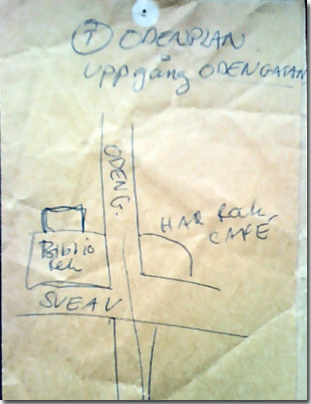 T ODENPLAN
Uppgång ODENGATAN
ODENG.
HAR Rock
CAFÉ
Biblio
tek
SVEAV